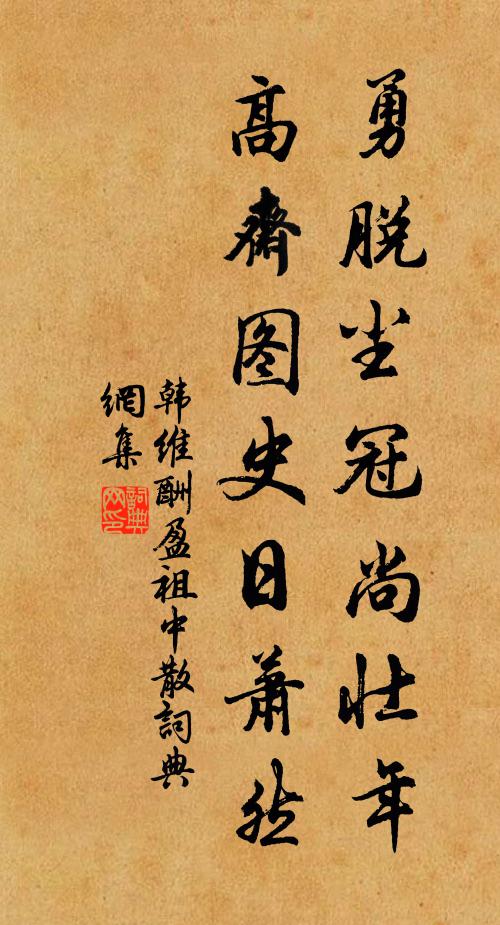 勇脱尘冠尚壮年
高齋图史日萧然
韩维酬盈祖中散詞典
網集
詞典
网印